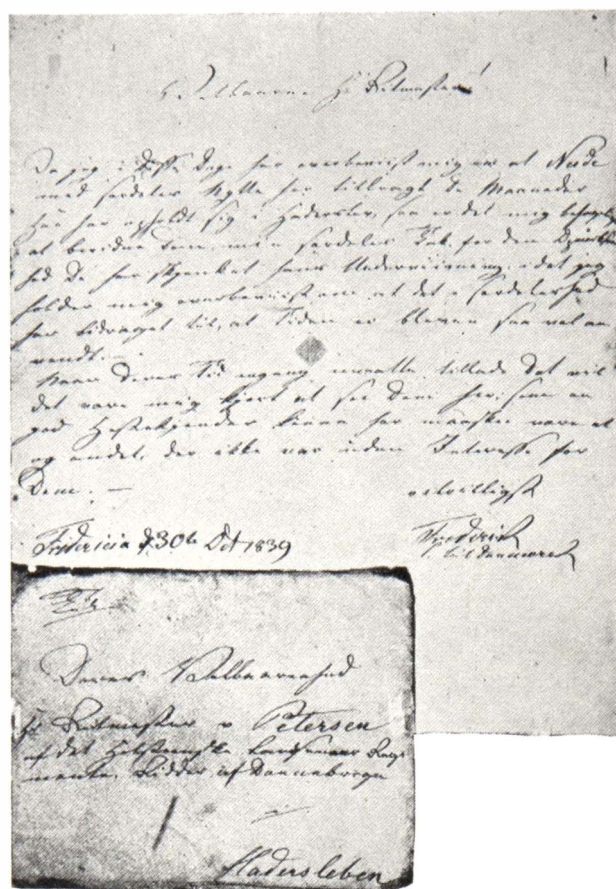 Velbaarne Hr Ritmester!
Da jeg i disse Dage har overbeviist mig om at Node
med særdeles Nytte har tilbragt de Maaneder
han har opholdt sig i Haderslev, saa er det mig
at bevidne Dem min særdeles Tak for den
hed De har skjænket hans Underviisning, idet jeg
holder mig overbeviist om at det i Særdeleshed
har bidraget til, at Tiden er bleven saa vel an
vendt.—
Naar Deres Tid engang maatte tillade det vil
det være mig kjært at see Dem her; som en
god Hestekjender kunne her maaskee være et
og andet, der ikke var uden Interesse for
Dem. —
velvilligst
Fredericia d 30te Oct 1839
Frederik
P. til Danmark
Deres Velbaarenhed
Hr Ritmester v Petersen
af det Holsteenske Landseneer Regi
mente, Ridder af Dannebroge
Hadersleben